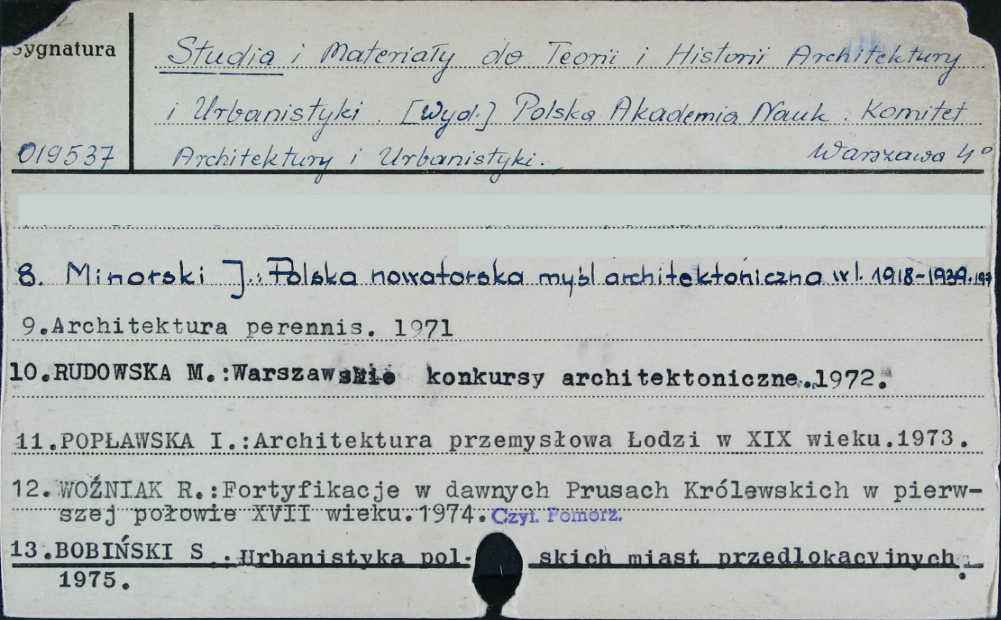 Sygnatura
Studia i Materiały do Teorii i Historii Architektury
i Urbanistyki. [Wyd.] Polska Akademia Nauk. Komitet
019537 Architektury i Urbanistyki. Warszawa 4°
8. Minorski J.: Polska nowatorska myśl architektoniczna w l. 1918-1939.
9.Architektura perennis. 1971
10.RUDOWSKA M.:Warszawskie konkursy architektoniczne.1972.
11.POPŁAWSKA I.:Architektura przemysłowa Łodzi w XIX wieku.1973.
12.WOŹNIAK R.:Fortyfikacje w dawnych Prusach Królewskich w pierw-
szej połowie XVII wieku.1974. Czyt. Pomorz.
13.BOBIŃSKI S.:Urbanistyka pol- skich miast przedlokacyjnych.
1975.